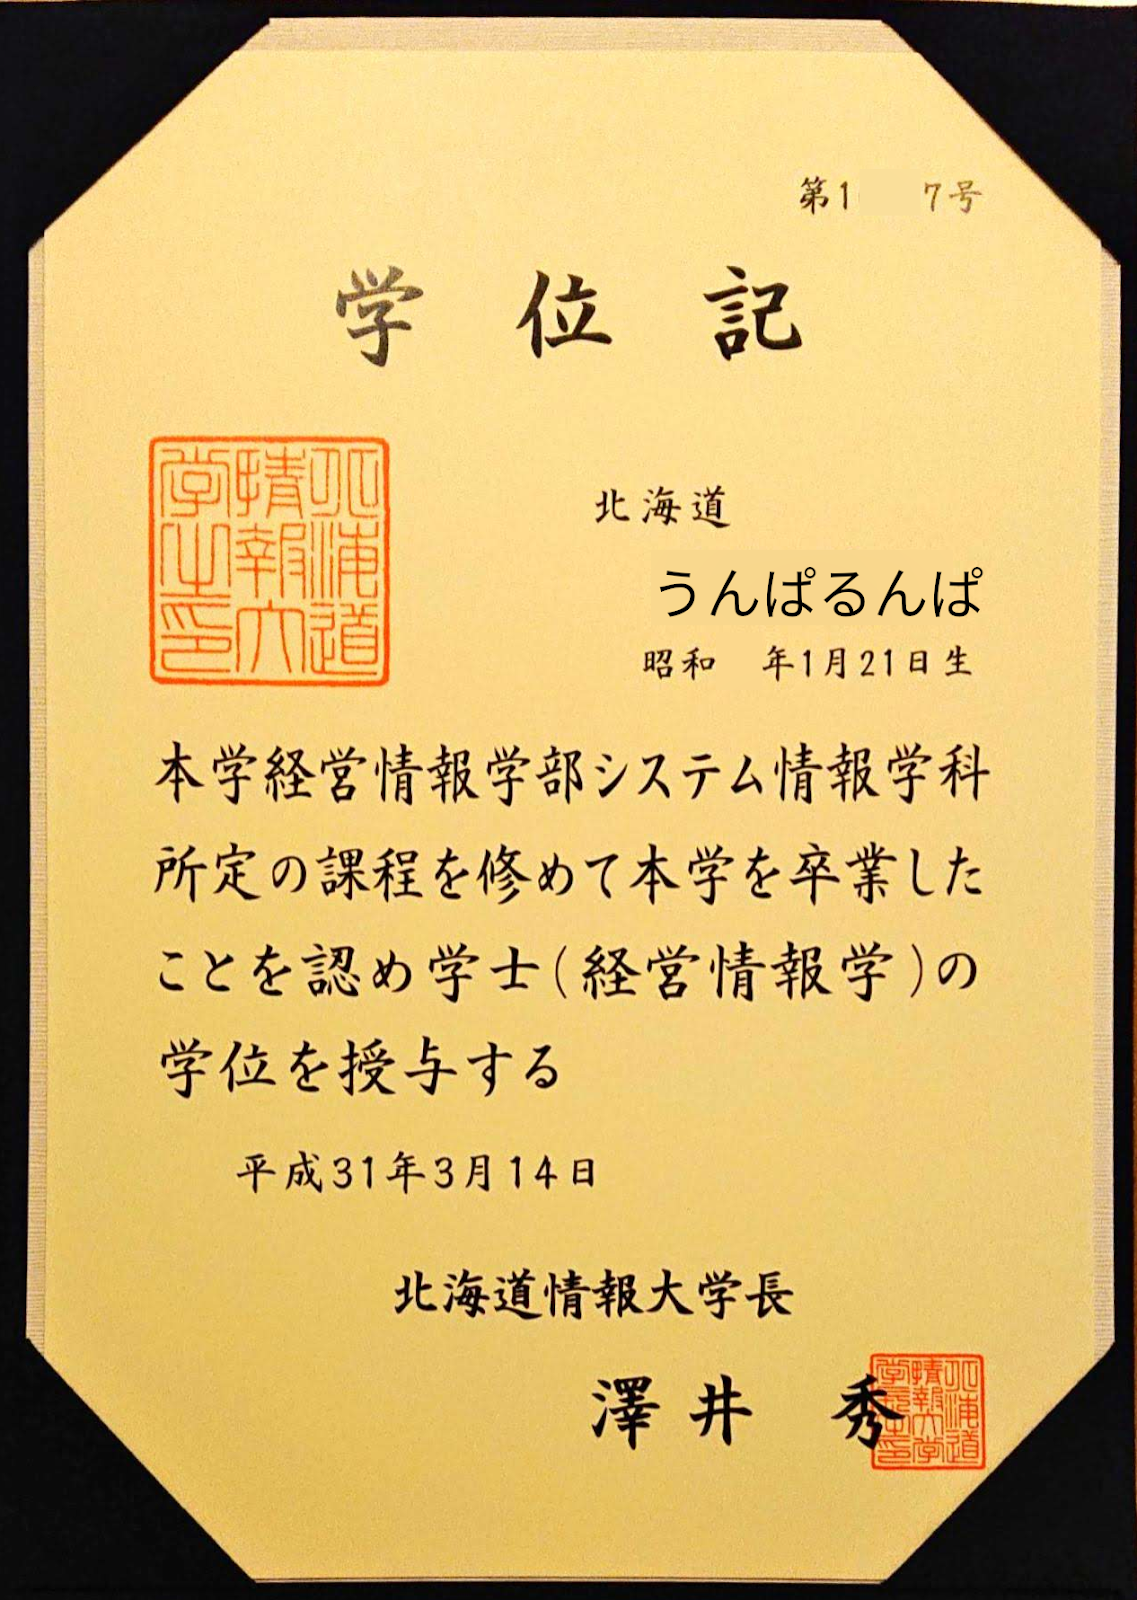 第1 7号
学位記
北海道情報大学之印
北海道
うんぱるんぱ
昭和 年1月21日生
本学経営情報学部システム情報学科
所定の課程を修めて本学を卒業した
ことを認め学士(経営情報学)の
学位を授与する
平成31年3月14日
北海道情報大学長
澤井 秀